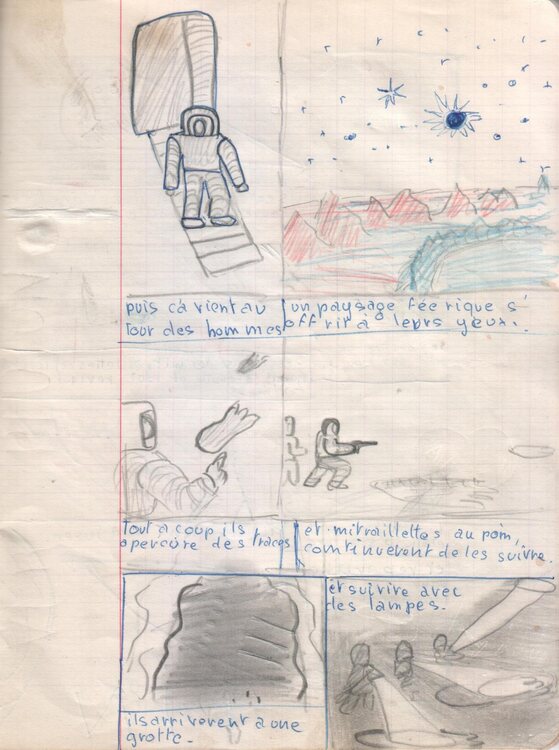 puis cà vient au
tour des hommes
un paysage féerique s'
offrir à leurs yeux.
tout a coup ils
apercure des traces
et mitraillettes au poin,
continuèrent de les suivre.
ils arrivèrent a une
grotte.
et suivire avec
des lampes.